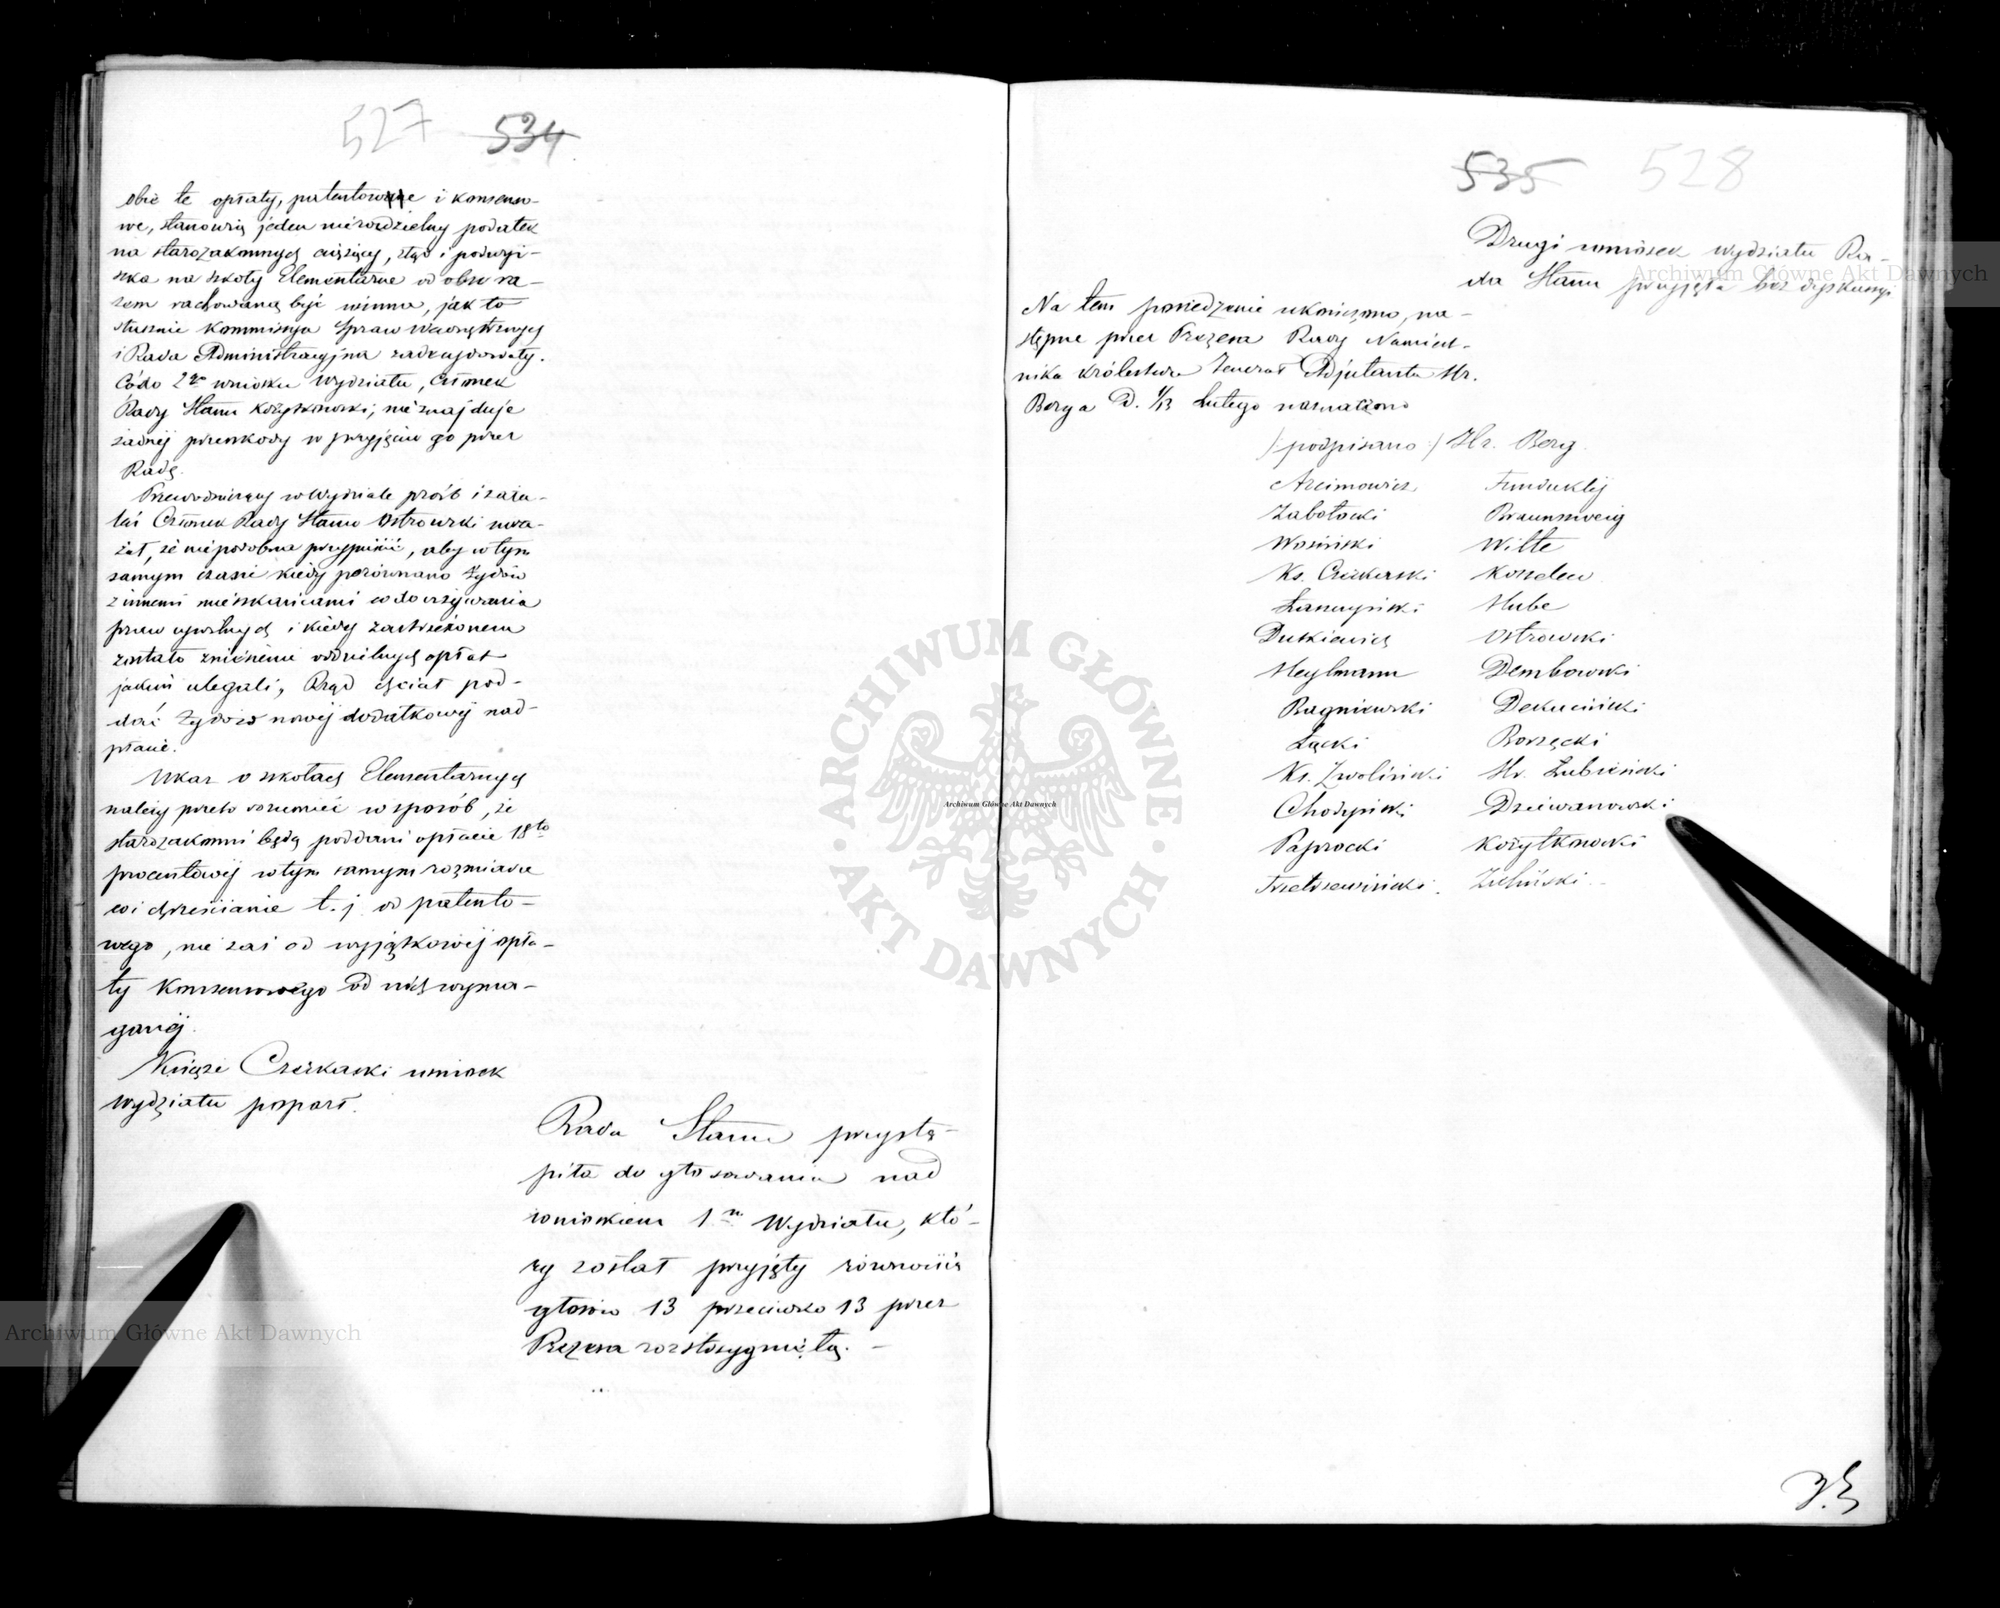 527 534
obie te opłaty, patentowe i konsenso-
we, stanowią jeden nierozdzielny podatek
na starozakonnych ciążący, ztąd i podwyż-
szka na szkoły Elementarne od obu ra-
zem rachowaną być winna, jak to
słusznie Kommissya Spraw Wewnętrznych
i Rada Administracyjna zadecydowały.
Co do 2go wniosku Wydziału, Członek
Rady Stanu Korytkowski, nie znajduje
żadnej przeszkody w przyjęciu go przez
Radę.
Przewodniczący w Wydziale próśb i zaża-
leń Członek Rady Stanu Ostrowski uwa-
żał, że niepodobna przypuścić, aby w tym
samym czasie kiedy porównano Żydów
z innemi mieszkańcami co do używania
praw cywilnych i kiedy zastrzeżonem
zostało zniesienie oddzielnych opłat
jakim ulegali, Rząd chciał pod-
dać Żydów nowej dodatkowej nad-
płacie.
Ukaz o szkołach Elementarnych
należy przeto rozumieć w sposób, że
starozakonni będą poddani opłacie 18to
procentowej w tym samym rozmiarze
co i chrześcianie t. j. od patento-
wego, nie zaś od wyjątkowej opła-
ty Konsensowego od nich wyma-
ganej.
Książe Czerkaski wniosek
Wydziału poparł.
Rada Stanu przystą-
piła do głosowania nad
wnioskiem 1m Wydziału, któ-
ry został przyjęty równością
głosów 13 przeciwko 13 przez
Prezesa rozstrzygniętą.
535 528
Drugi wniosek Wydziału Ra-
da Stanu przyjęła bez dyskusyi
Na tem posiedzenie ukończono, na-
stępne przez Prezesa Rady Namiest-
nika Królestwa Jenerał Adjutanta Hr.
Berga D. 1/13 Lutego naznaczono
/: podpisano :/ Hr. Berg.
Arcimowicz Funduklej
Zabołocki Braunschweig
Wosiński Witte
Ks. Czerkaski Koszelew
Łaszczyński Hube
Dutkiewicz Ostrowski
Heylmann Dembowski
Bagniewski Dekuciński
Łącki Borzęcki
Ks. Zwoliński Hr. Łubieński
Chodyński Dziewanowski
Paprocki Korytkowski
Trzetrzewiński Zieliński
Archiwum Główne Akt Dawnych
ARCHIWUM GŁÓWNE
AKT DAWNYCH
Archiwum Główne Akt Dawnych
Archiwum Główne Akt Dawnych